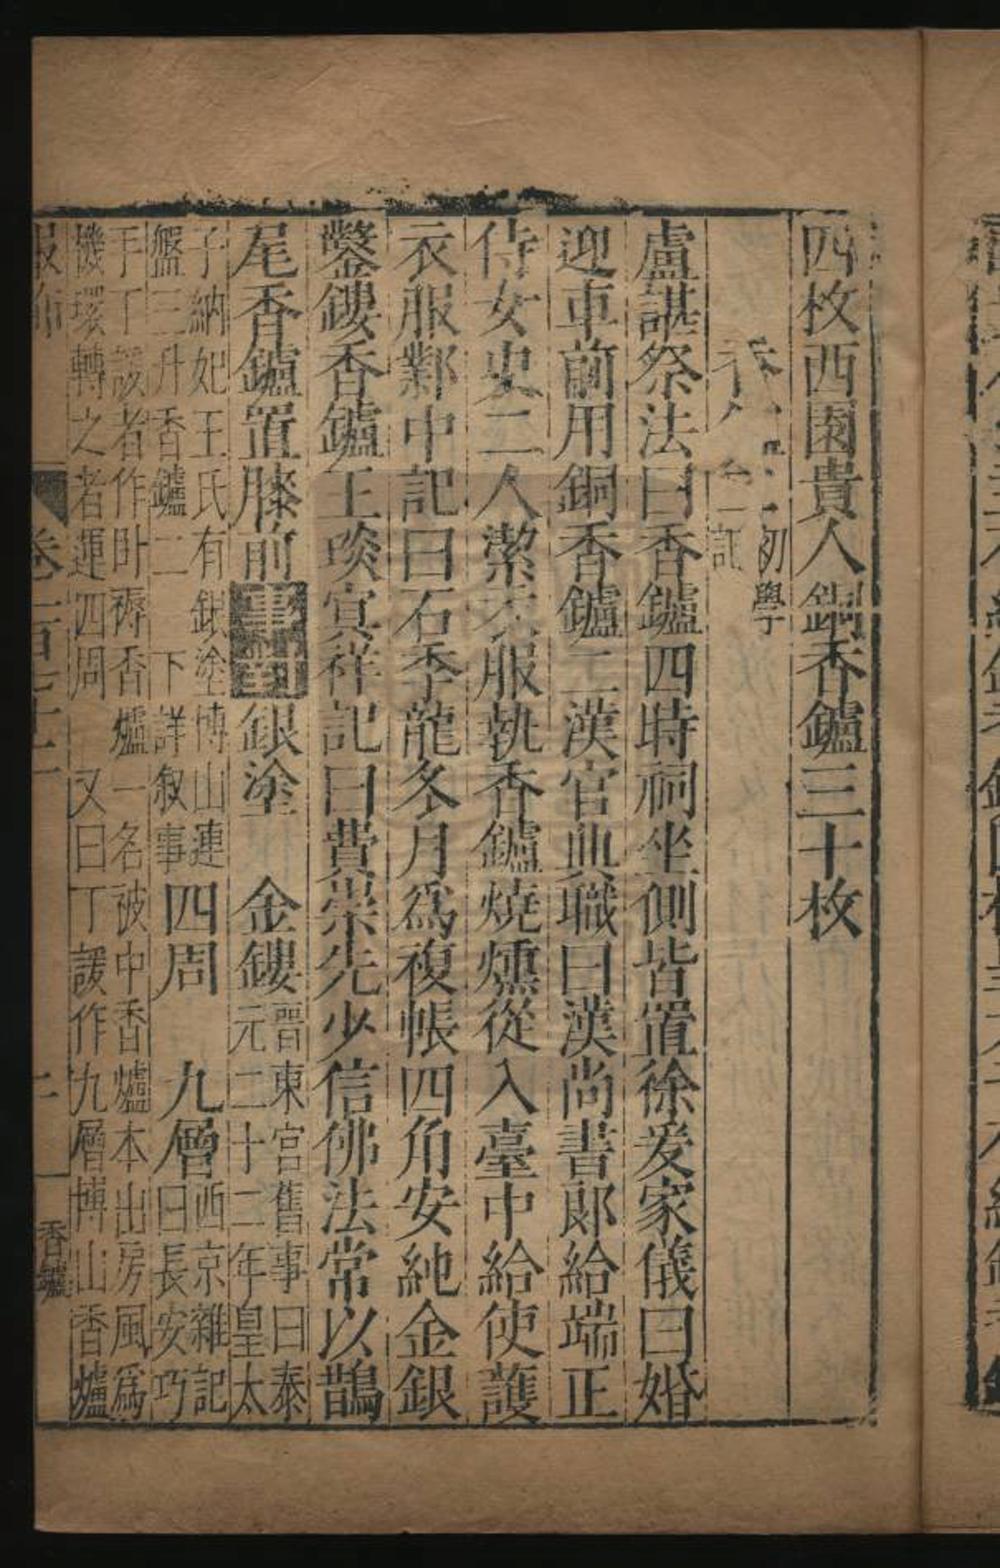 四枚西園貴人銅香鑪三十枚
香 初學
記
盧諶祭法曰香鑪四時祠坐側皆置徐爰家儀曰婚
迎車前用銅香鑪二漢官典職曰漢尚書郎給端正
侍女史二人潔衣服執香鑪燒燻從入臺中給使護
衣服鄴中記曰石季龍冬月爲複帳四角安純金銀
鑿鏤香鑪王琰冥祥記曰費崇先少信佛法常以鵲
尾香鑪置膝前事對銀塗 金鏤晉東宮舊事曰泰
元二十二年皇太
子納妃王氏有銀塗博山連
盤三升香鑪二 下詳敘事四周 九層西京雜記
曰長安巧
手丁諼者作卧褥香爐一名被中香爐本出房風爲
機環轉之者運四周 又曰丁諼作九層博山香爐
卷一百三十二
二
香鑪